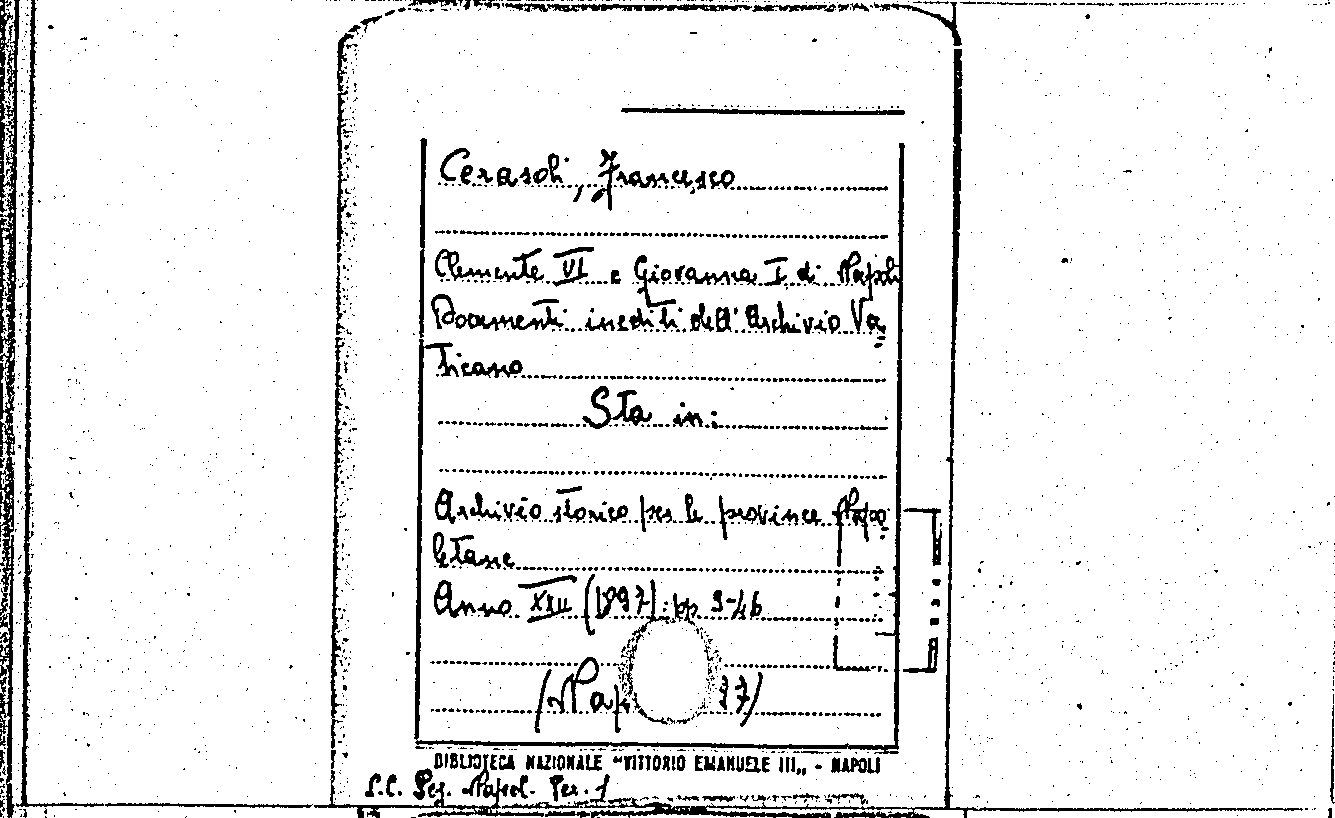 Cerasoli, Francesco
Clemente VI e Giovanna I di Napoli
Documenti inediti dell'Archivio Va
ticano
Sta in:
Archivio storico per le province Napo
letane
Anno XXII (1897) pp 3-46
(Nap 97)
BIBLIOTECA NAZIONALE "VITTORIO EMANUELE III„ - NAPOLI
S.C. Sez. Napol. Per. 1